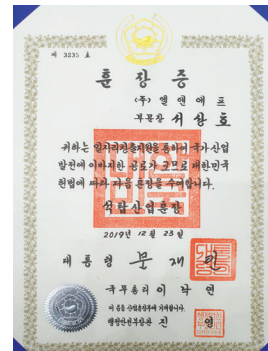 제 3235 호
훈장증
(주) 엘앤에프
부문장 서상호
귀하는 일자리창출지원을 통하여 국가산업
발전에 이바지한 공로가 크므로 대한민국
헌법에 따라 다음 훈장을 수여합니다.
석탑산업훈장
2019년 12월 23일
대통령 문재인
국무총리 이낙연
이 증을 산업훈장부에 기재합니다.
행정안전부장관 진 영